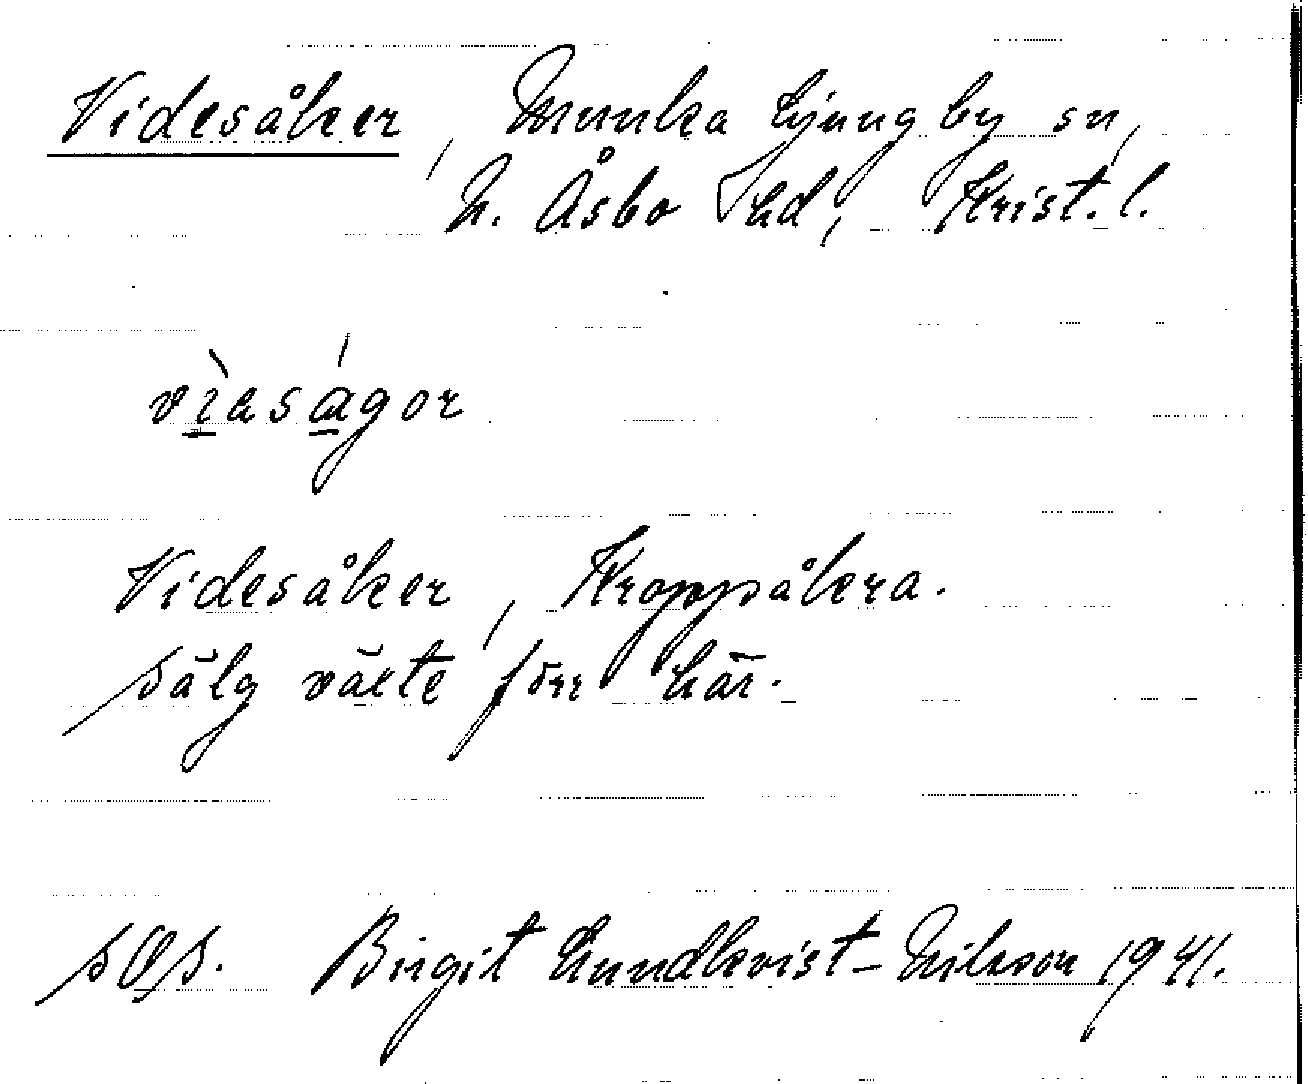 Videsåker, Munka Ljungby sn,
N. Åsbo hd, Krist. l.
vìaságor
Videsåker, Kroppsåkra.
Sälg växte förr här.
SOS. Birgit Lundkvist-Nilsson 1941.